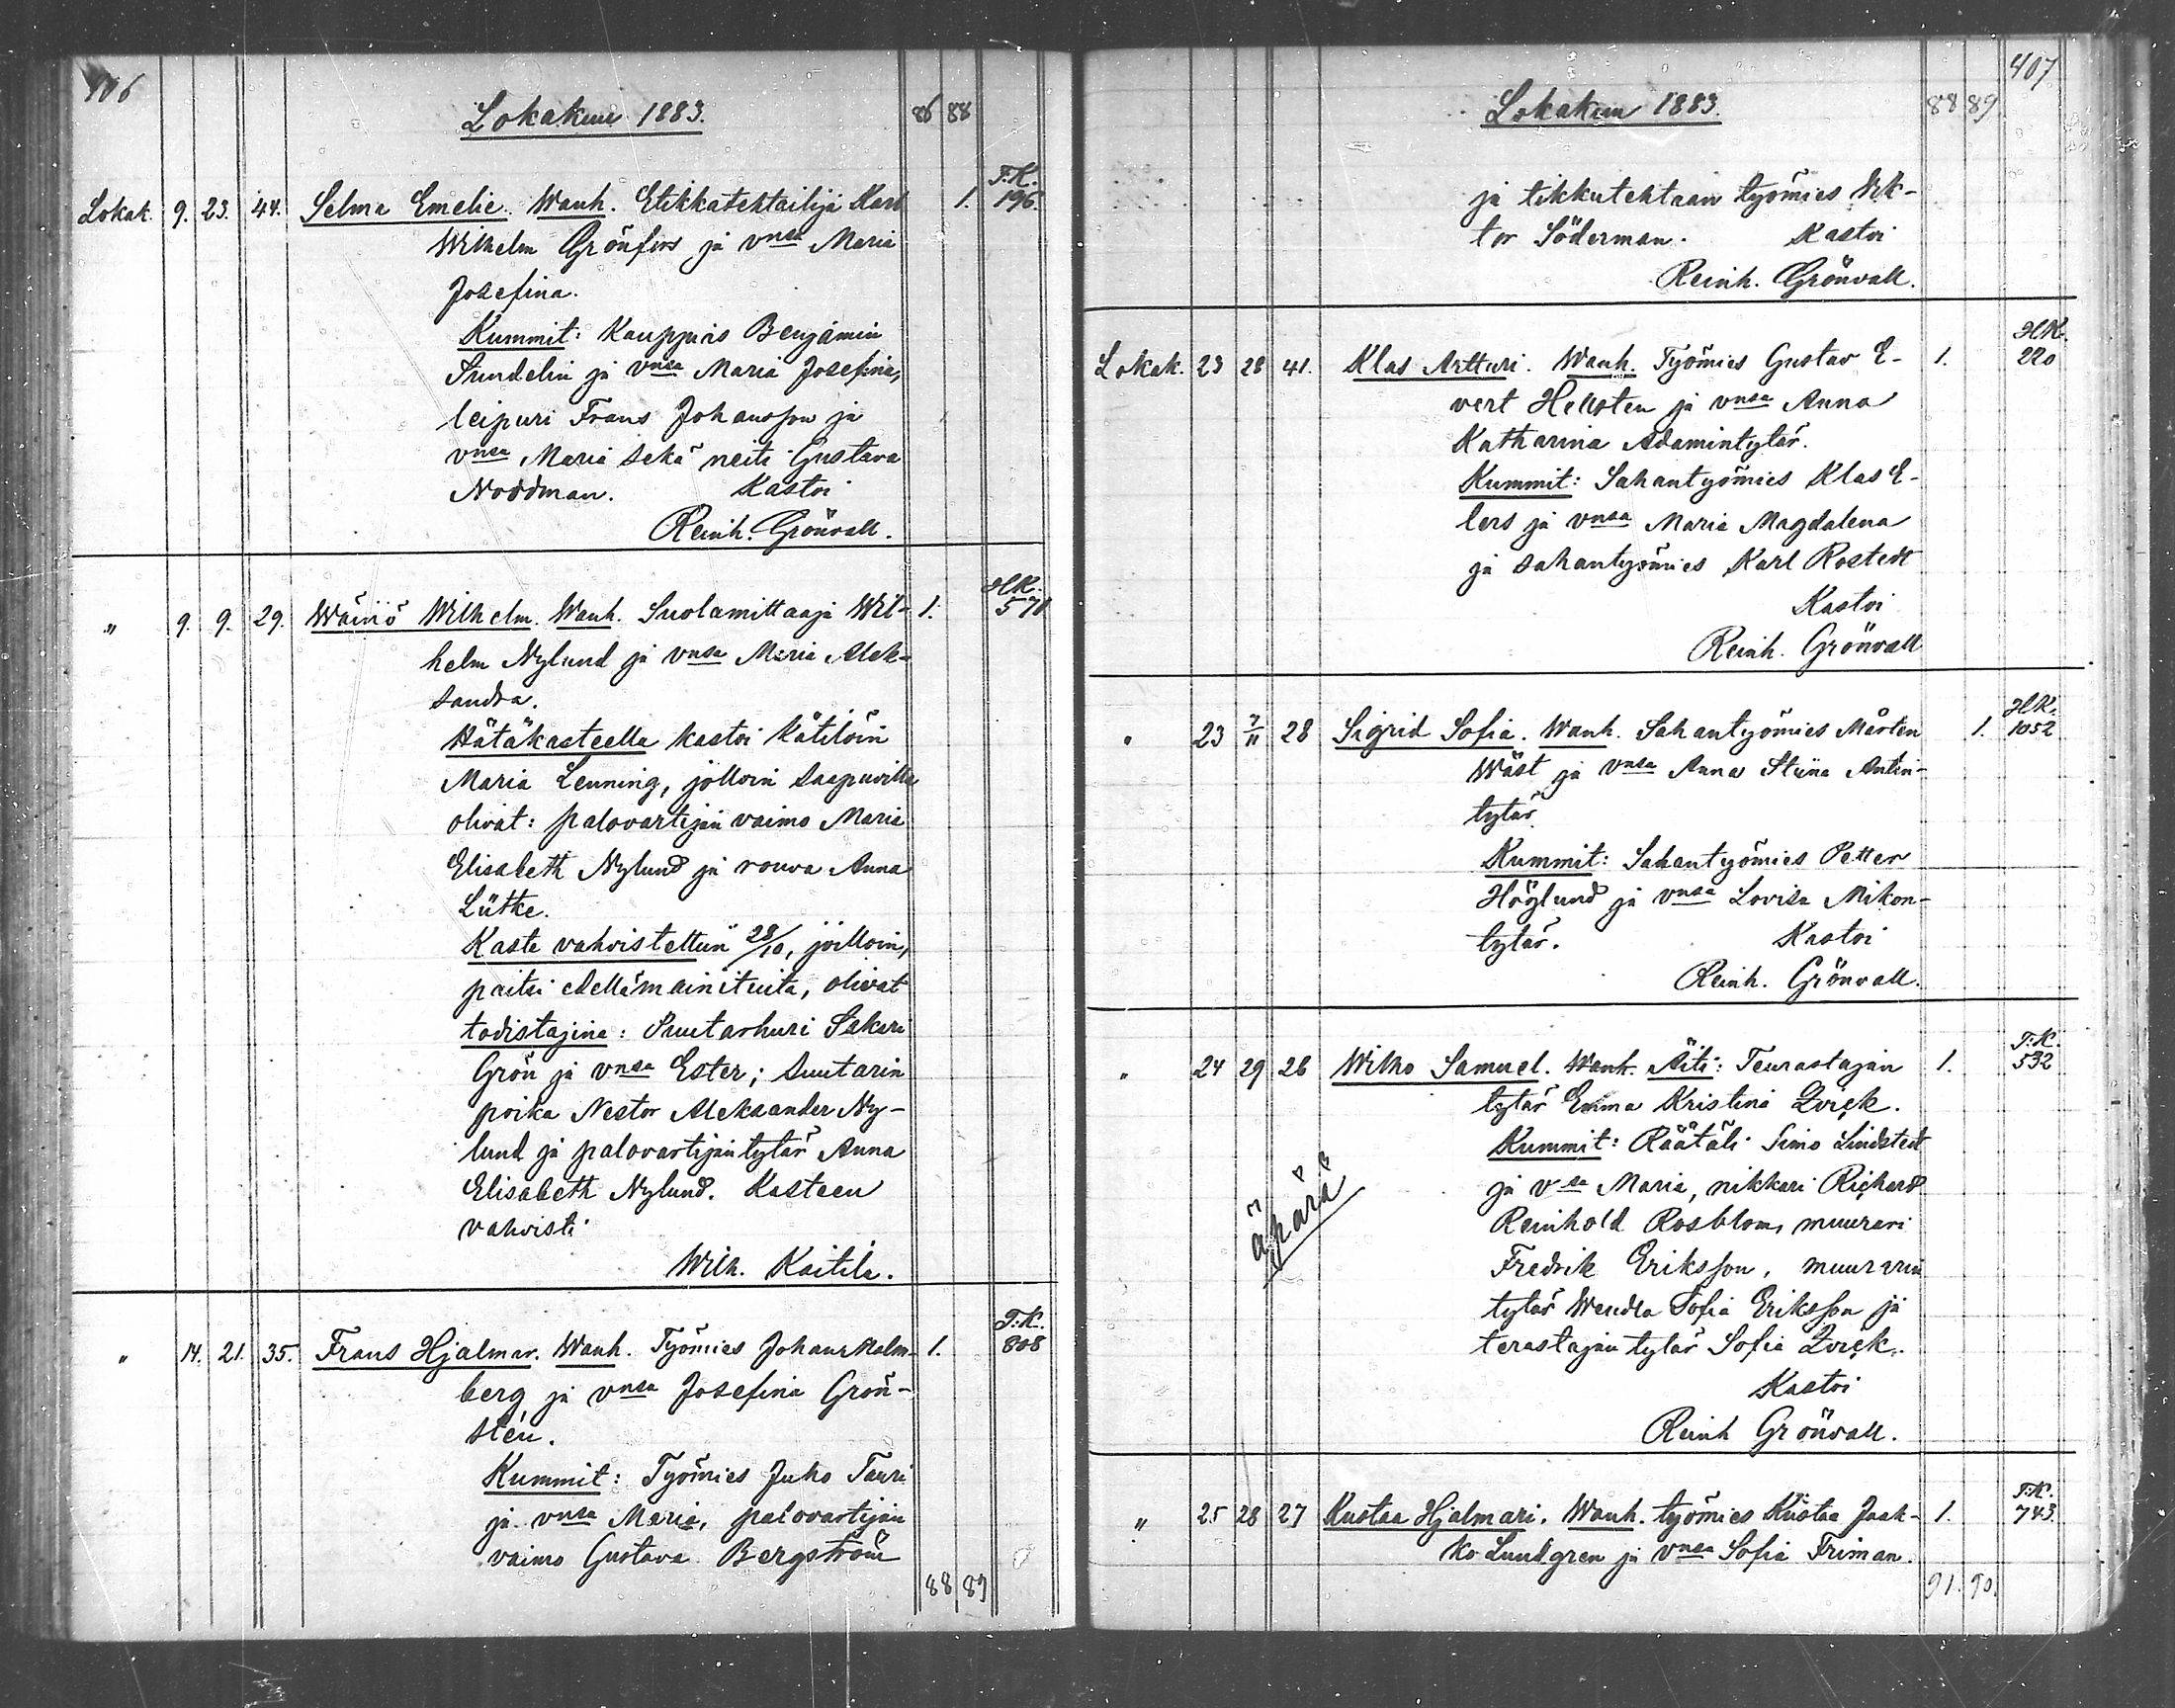 406
Lokakuu 1883.
86 88
T.K.
Lokak. 9. 23. 44. Selma Emelie. Wanh. Etikkatehtailija Karl 1. 196.
Wilhelm Grönfors ja vnsa Maria
Josefina.
Kummit: Kauppias Benjamin
Sundelin ja vnsa Maria Josefina,
leipuri Frans Johansson ja
vnsa Maria sekä neiti Gustava
Noddman. Kastoi
Reinh. Grönvall.
H.K.
" 9. 9. 29. Wäinö Wilhelm. Wanh. Suolamittaaja Wil- 1. 571
helm Nylund ja vnsa Maria Alek-
sandra.
Hätäkasteella kastoi kätilöin
Maria Lenning, jolloin saapuvilla
olivat: palovartijan vaimo Maria
Elisabeth Nylund ja rouva Anna
Lütke.
Kaste vahvistettiin 28/10, jolloin,
paitsi edellämainituita, olivat
todistajina: Puutarhuri Sakari
Grön ja vnsa Ester; suutarin
poika Nestor Aleksander Ny-
lund ja palovartijan tytär Anna
Elisabeth Nylund. Kasteen
vahvisti
Wilh. Kaitila.
T.K.
" 14. 21. 35. Frans Hjalmar. Wanh. Työmies Johan Malm- 1. 808
berg ja vnsa Josefina Grön-
stén.
Kummit: Työmies Juho Tauri
ja vnsa Maria, palovartijan
vaimo Gustava Bergström
88 89
407
Lokakuu 1883.
88 89
ja tikkutehtaan työmies Vik-
tor Söderman. Kastoi
Reinh. Grönvall.
H.K.
Lokak. 23 28 41. Klas Artturi. Wanh. Työmies Gustav E- 1. 220
vert Hellsten ja vnsa Anna
Katharina Adamintytär.
Kummit: Sahantyömies Klas E-
lers ja vnsa Maria Magdalena
ja sahantyömies Karl Rostedt
Kastoi
Reinh. Grönvall
H.K.
" 23 7/11 28 Sigrid Sofia. Wanh. Sahantyömies Mårten 1. 1052
Wäst ja vnsa Anna Stiina Antin-
tytär.
Kummit: Sahantyömies Petter
Höglund ja vnsa Lovisa Mikon-
tytär. Kastoi
Reinh. Grönvall.
T.K.
" 24 29 26 Wilho Samuel. Wanh. Äiti: Teurastajan 1. 532
tytär Emma Kristina Zvick.
Kummit: Räätäli Simo Lindstedt
ja vsa Maria, nikkari Richard
äpärä
Reinhold Rosblom, muurari
Fredrik Eriksson, muurarin
tytär Wendla Sofia Eriksson ja
terastajan tytär Sofia Zvick.
Kastoi
Reinh Grönvall.
T.K.
" 25 28 27 Kustaa Hjalmari. Wanh. työmies Kustaa Jaak- 1. 743.
ko Lundgren ja vnsa Sofia Friman.
91. 90.